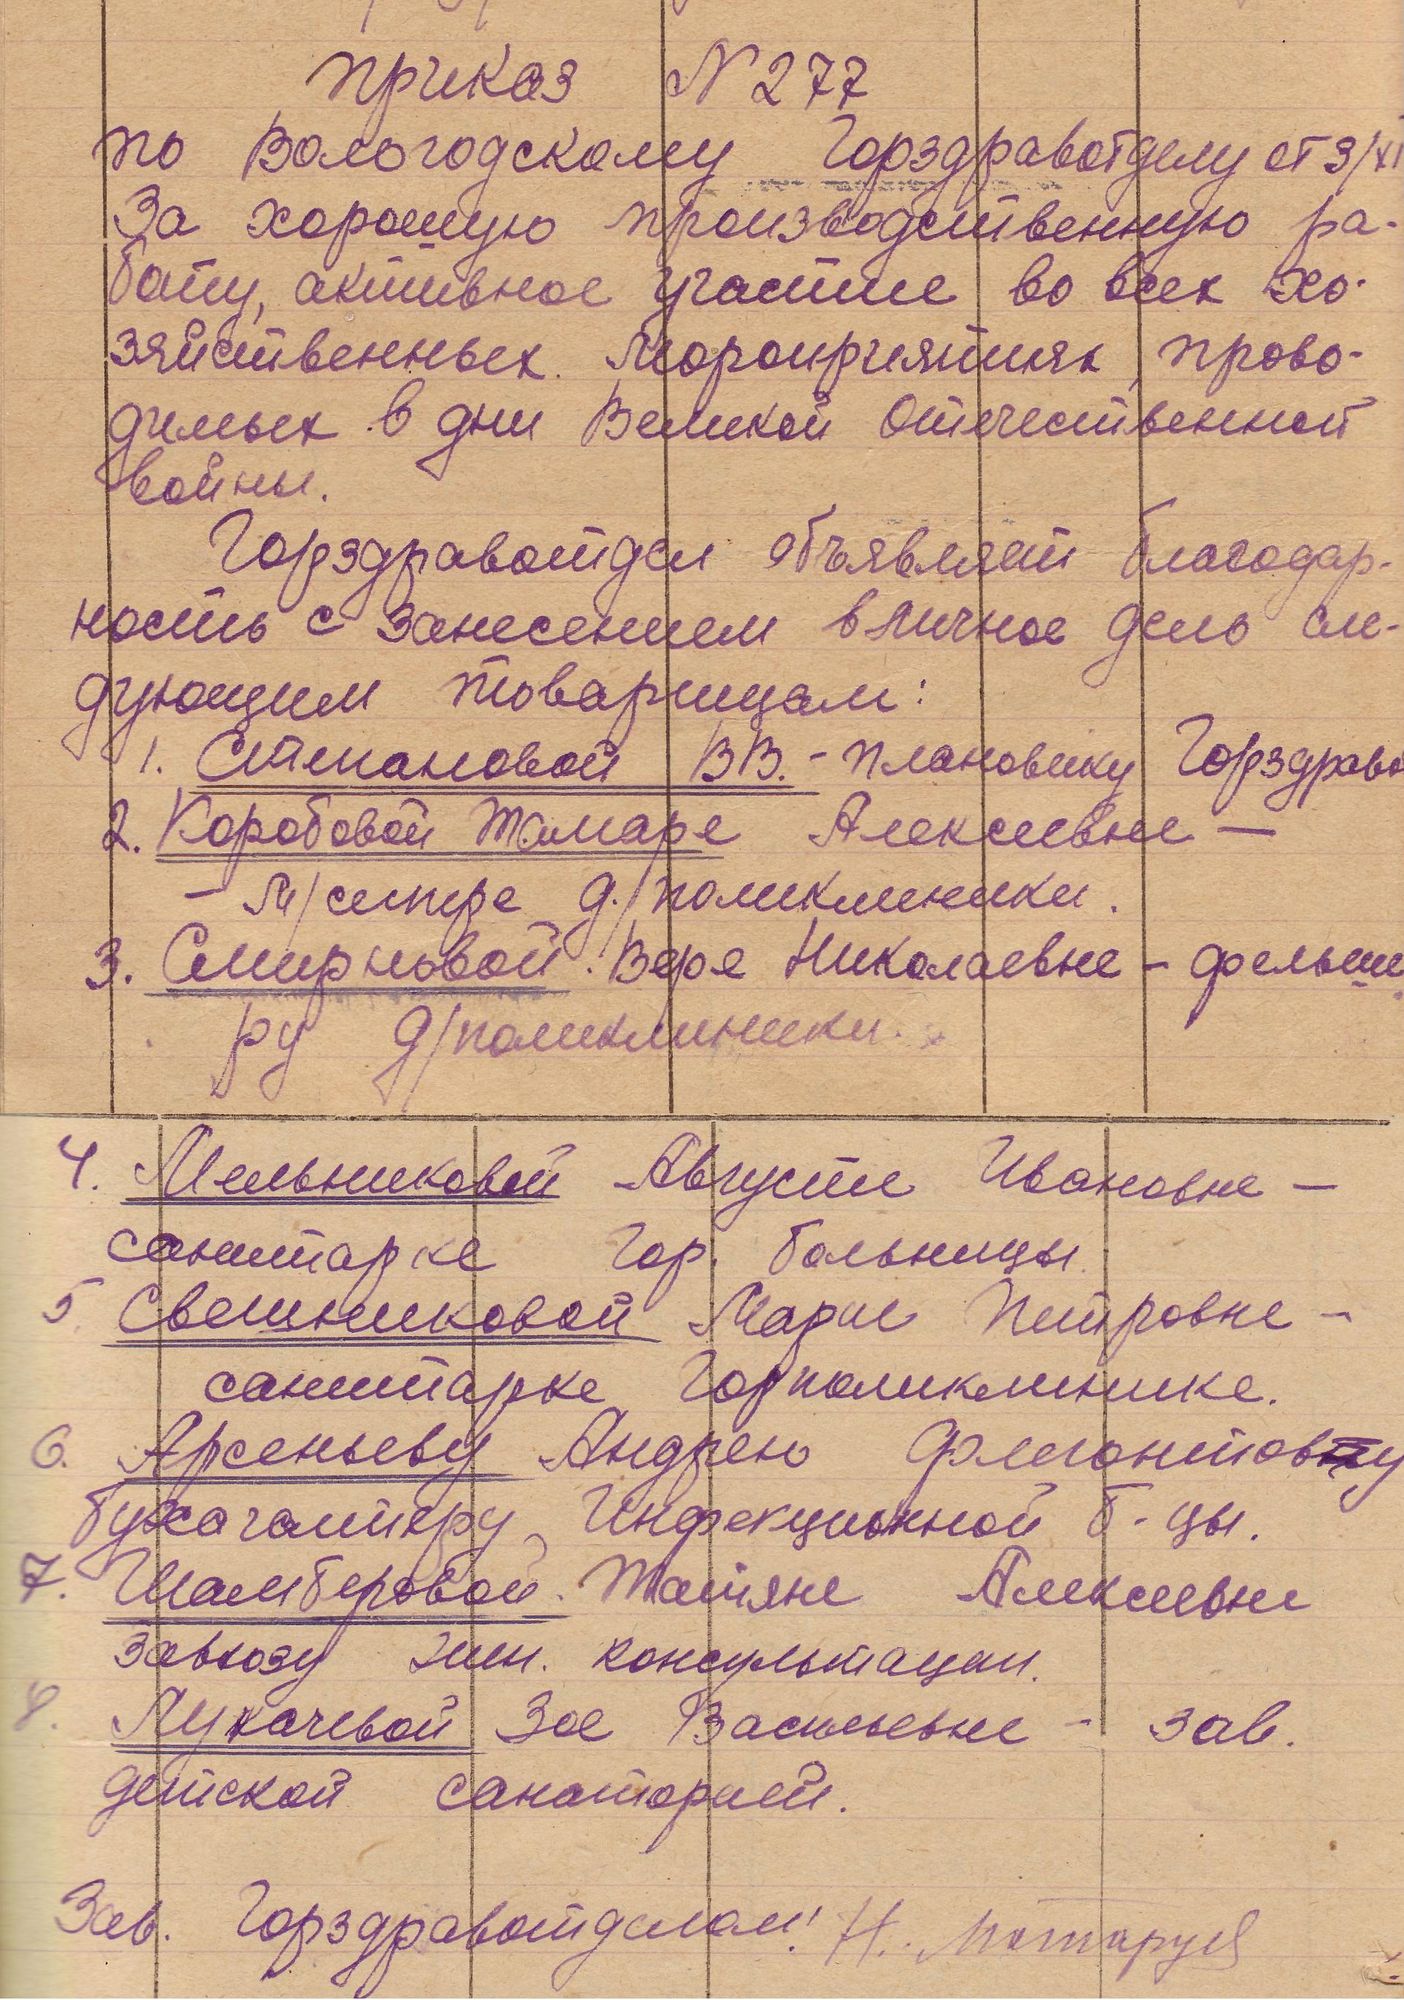 Приказ N 277
по Вологодскому Горздравотделу от 3/XI
За хорошую производственную ра-
боту, активное участие во всех хо-
зяйственных мероприятиях, прово-
димых в дни Великой Отечественной
войны.
Горздравотдел объявляет благодар-
ность с занесением в личное дело сле-
дующим товарищам:
1. Степановой В.В. - плановику Горздраво
2. Коробовой Тамаре Алексеевне —
- м/сестре д./поликлиники.
3. Смирновой Вере Николаевне - фельдше
ру д/поликлиники.
4. Мельниковой Августе Ивановне -
санитарке гор. больницы.
5. Свешниковой Марие Петровне -
санитарке Горполиклинике.
6. Арсеньеву Андрею Флегонтовчу
бухгалтеру Инфекционной б-цы.
7. Шамберовой Татяне Алексеевне
завхозу жен. консультации.
8. Лукачевой Зое Васильевне - зав.
детской санаторией.
Зав. Горздравотделом: Н.